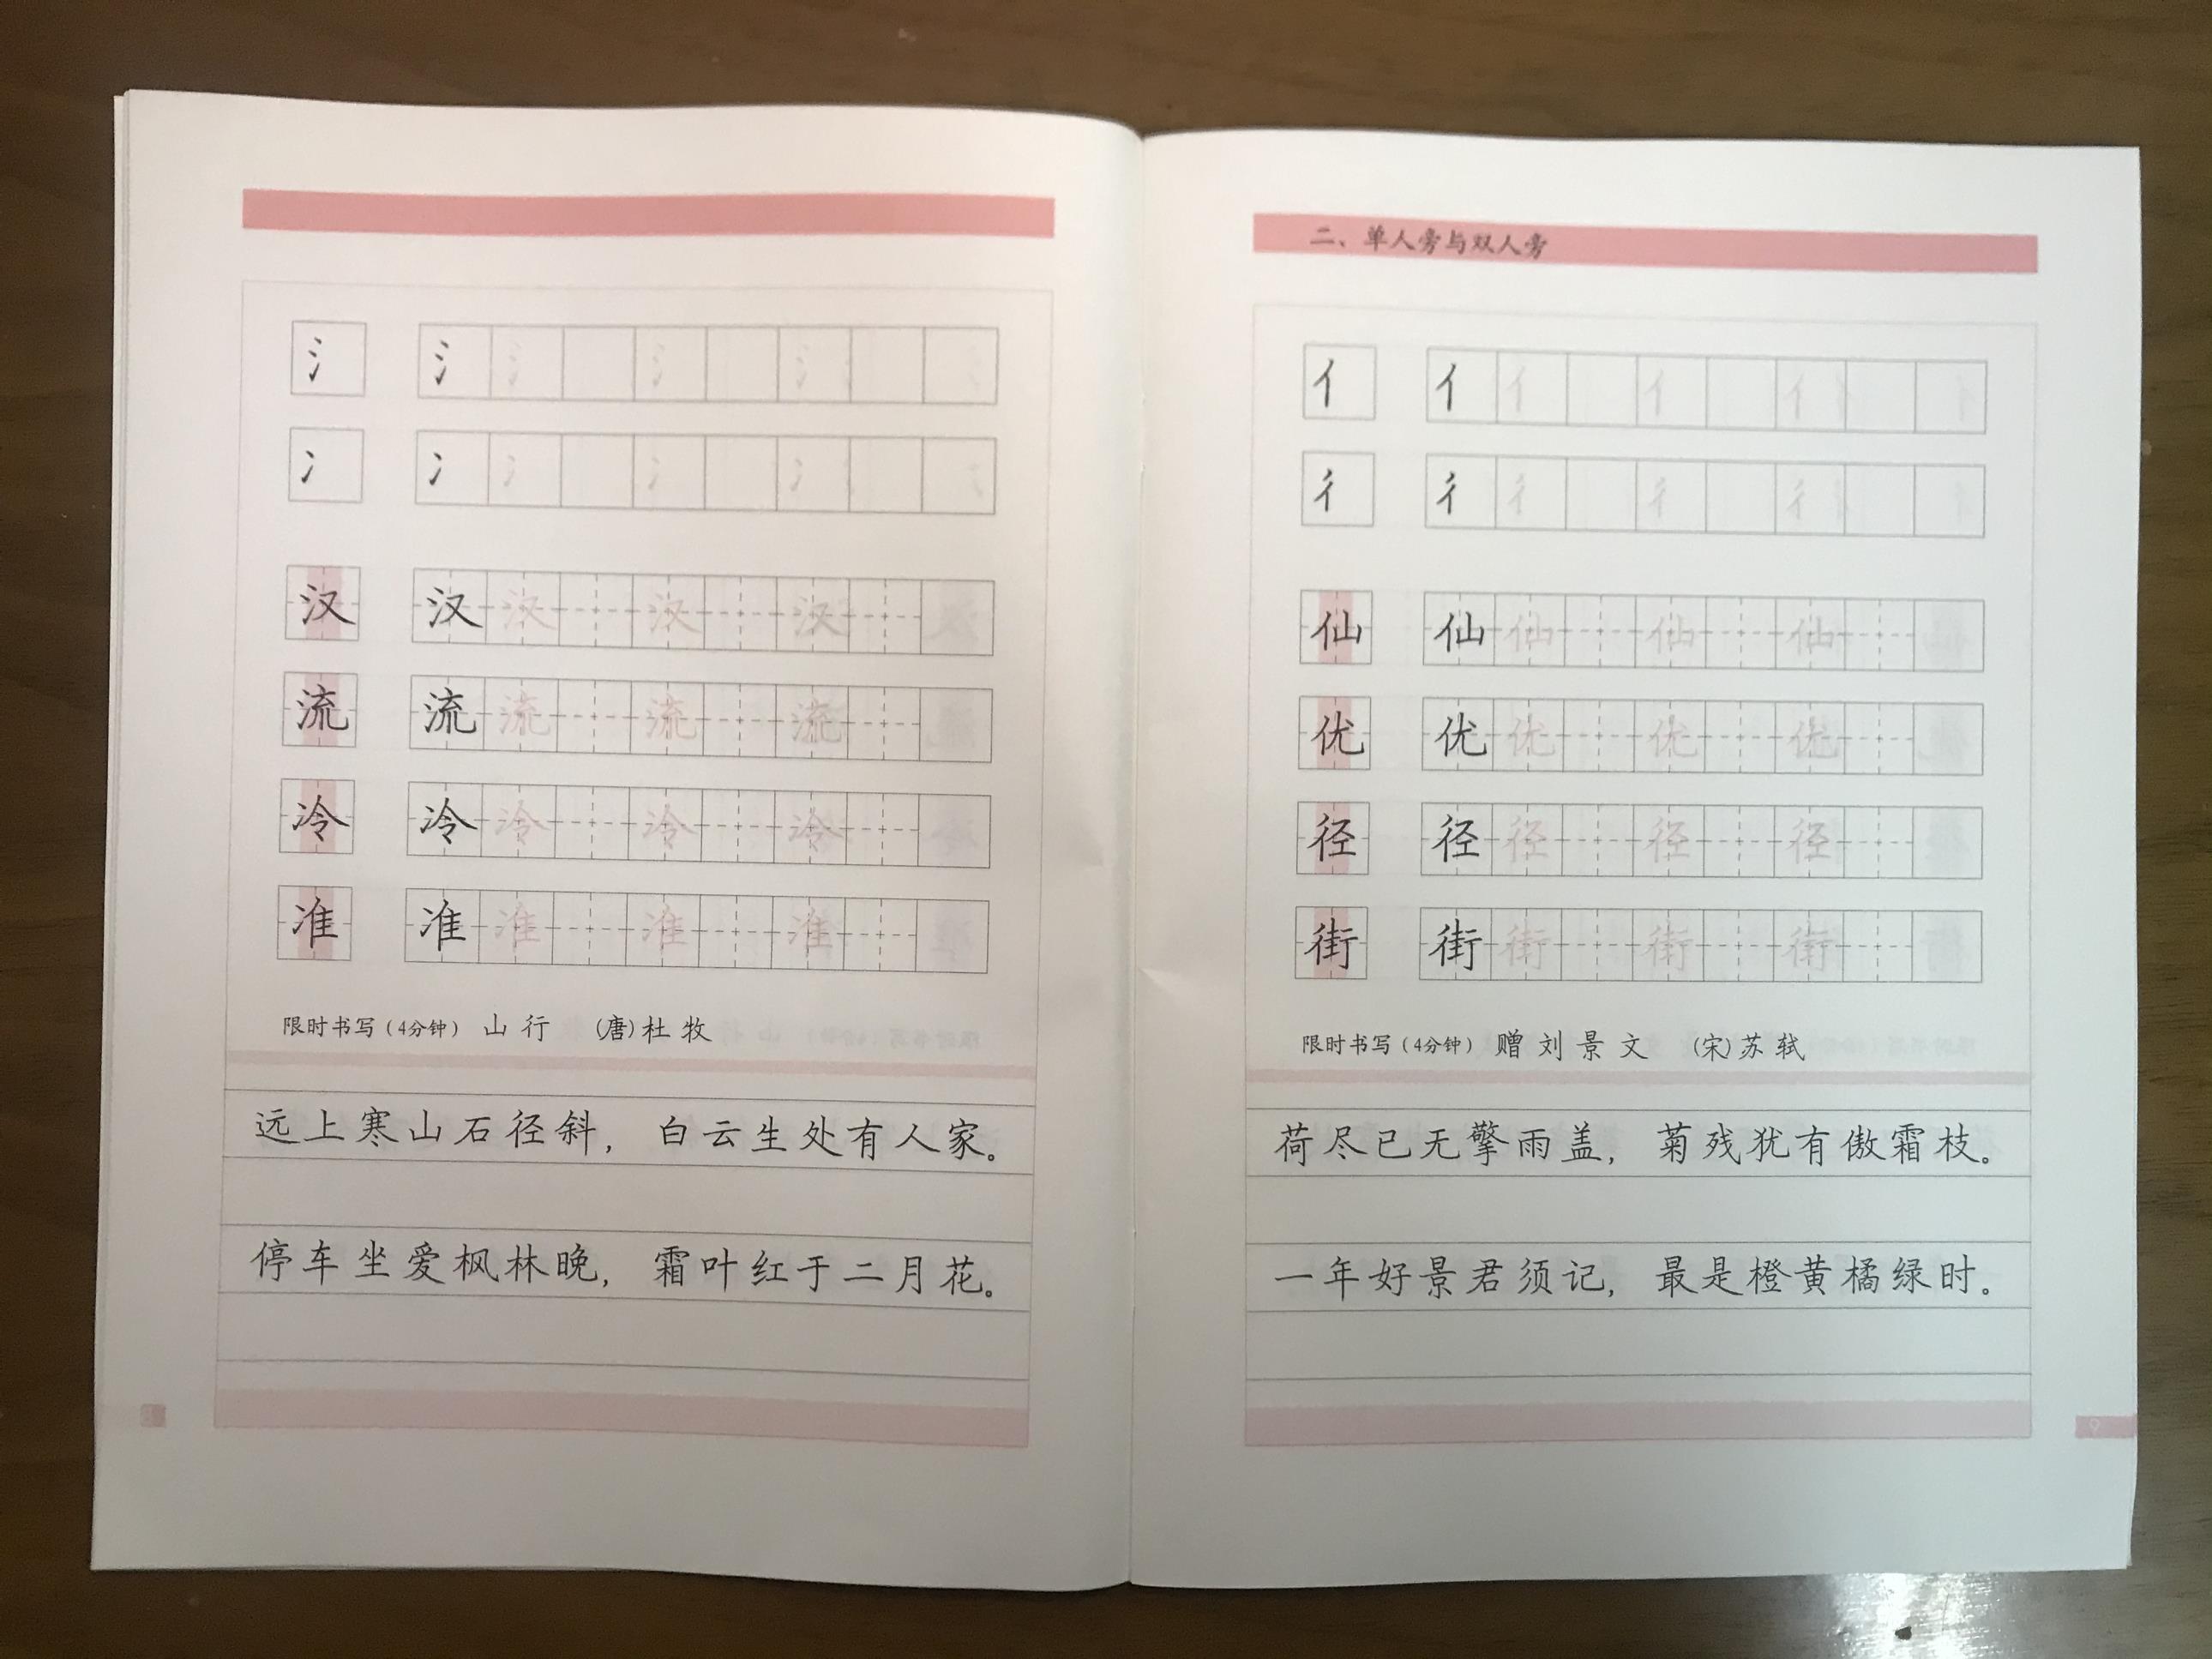 氵 氵 氵 氵 氵
冫 冫 冫 冫 冫
汉 汉 汉 汉 汉
流 流 流 流 流
冷 冷 冷 冷 冷
准 准 准 准 准
限时书写(4分钟) 山行 (唐)杜牧
远上寒山石径斜，白云生处有人家。
停车坐爱枫林晚，霜叶红于二月花。
二、单人旁与双人旁
亻 亻 亻 亻 亻
彳 彳 彳 彳 彳
仙 仙 仙 仙 仙
优 优 优 优 优
径 径 径 径 径
街 街 街 街 街
限时书写(4分钟) 赠刘景文 (宋)苏轼
荷尽已无擎雨盖，菊残犹有傲霜枝。
一年好景君须记，最是橙黄橘绿时。
9